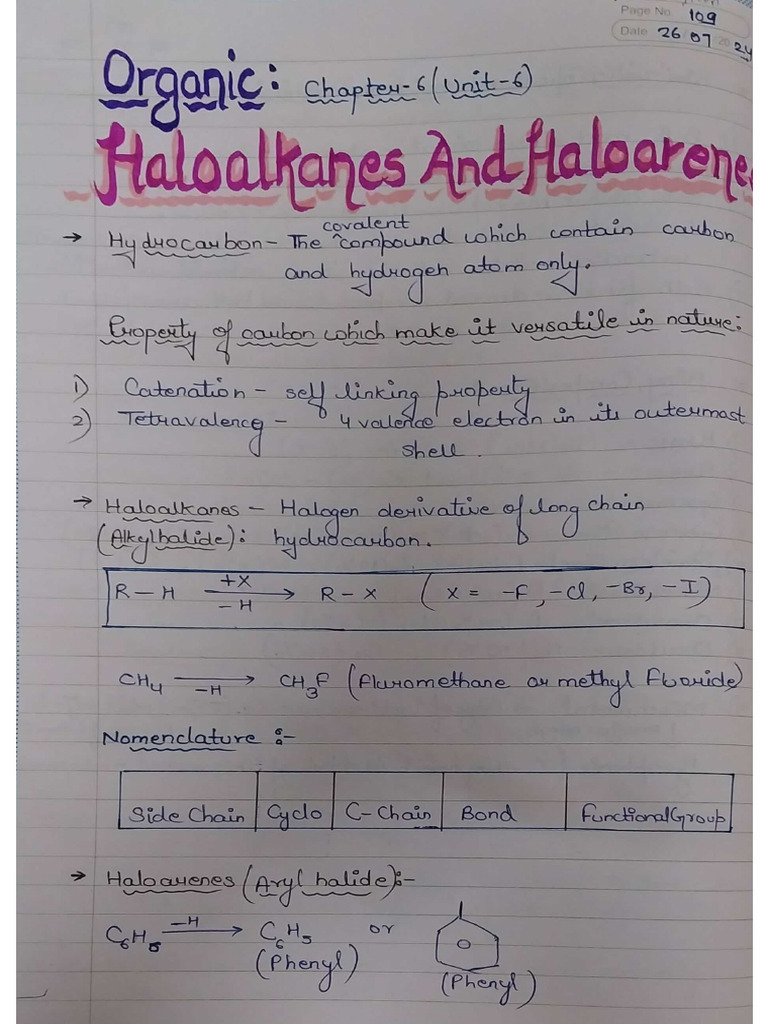 Page No. 109
Date 26 07 2024
Organic: Chapter-6 (Unit-6)
Haloalkanes And Haloarenes
→ Hydrocarbon - The covalent compound which contain carbon
and hydrogen atom only.
Property of carbon which make it versatile in nature:
1) Catenation - self linking property
2) Tetravalency - 4 valence electron in its outermost
shell.
→ Haloalkanes - Halogen derivative of long chain
(Alkylhalide): hydrocarbon.
R-H +X -H → R-X (X = -F, -Cl, -Br, -I)
CH4 -H → CH3F (Fluromethane or methyl Fluoride)
Nomenclature :-
Side Chain Cyclo C-Chain Bond Functional Group
→ Haloarenes (Aryl halide):-
C6H6 -H → C6H5 or
(Phenyl) (Phenyl)